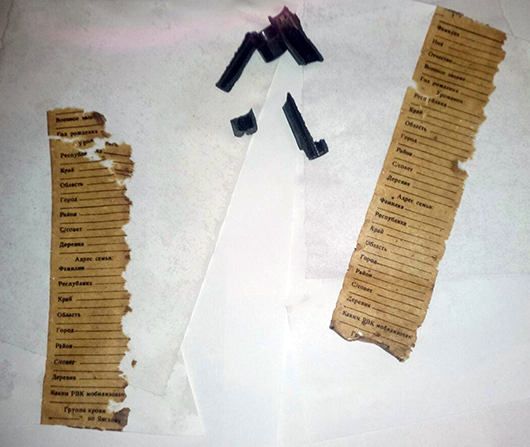 Военное звание
Год рождения
Республика
Край
Область
Город
Район
С/совет
Деревня
Адрес семьи:
Фамилия
Республика
Край
Область
Город
Район
С/совет
Деревня
Каким РВК мобилизован
Группа крови
по Янскому
Фамилия
Имя
Отчество
Военное звание
Год рождения
Уроженец
Республика
Край
Область
Город
Район
С/совет
Деревня
Адрес семьи
Фамилия
Республика
Край
Область
Город
Район
С/совет
Деревня
Каким РВК мобилизован